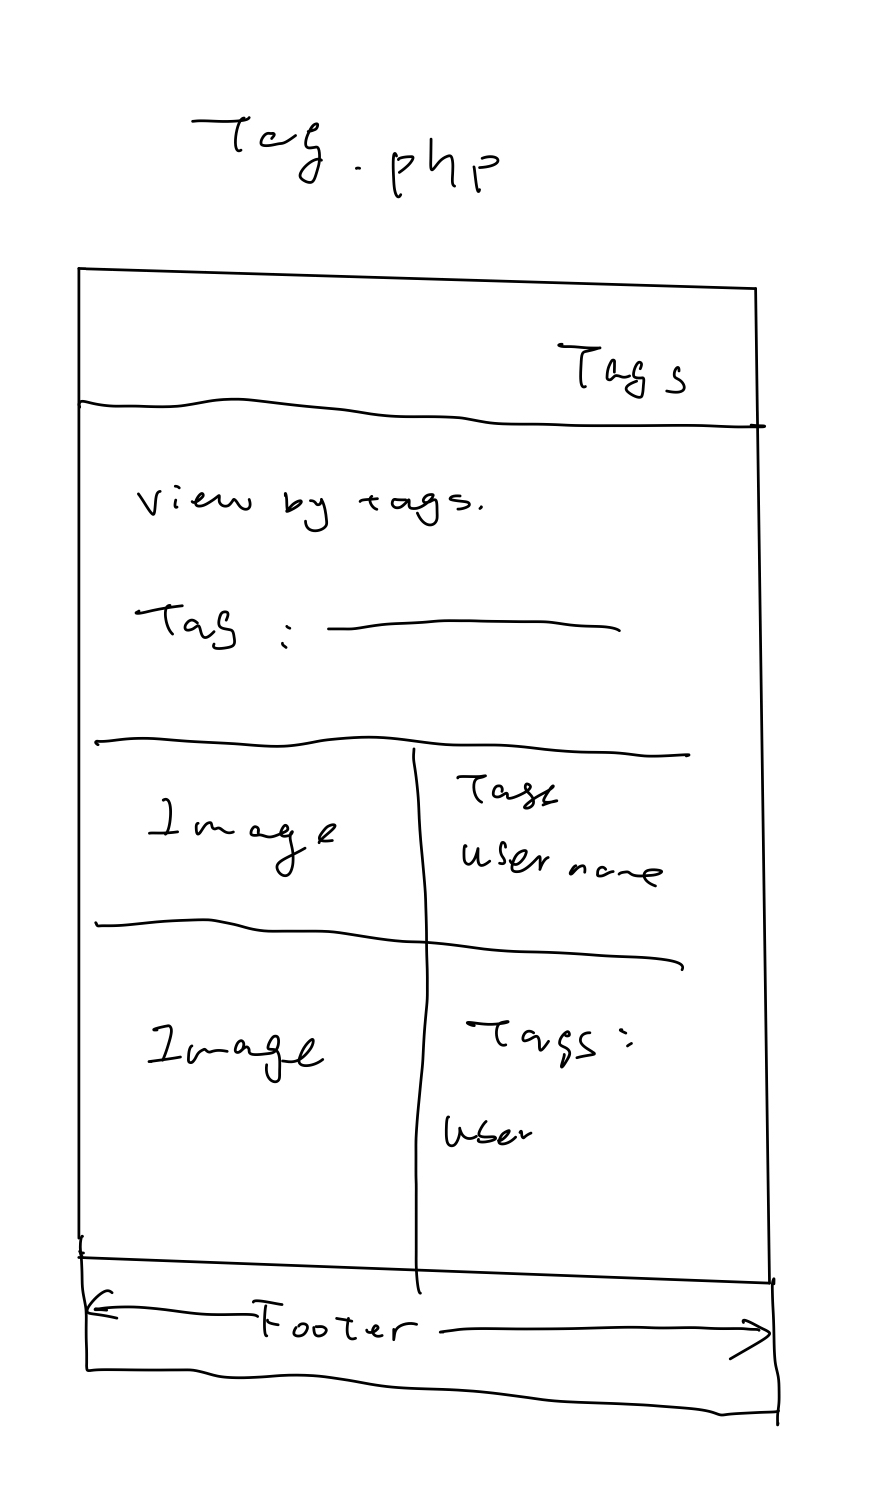 Tag.php
Tags
view by tags.
Tag :
Image
Tags
username
Image
Tags :
User
Footer